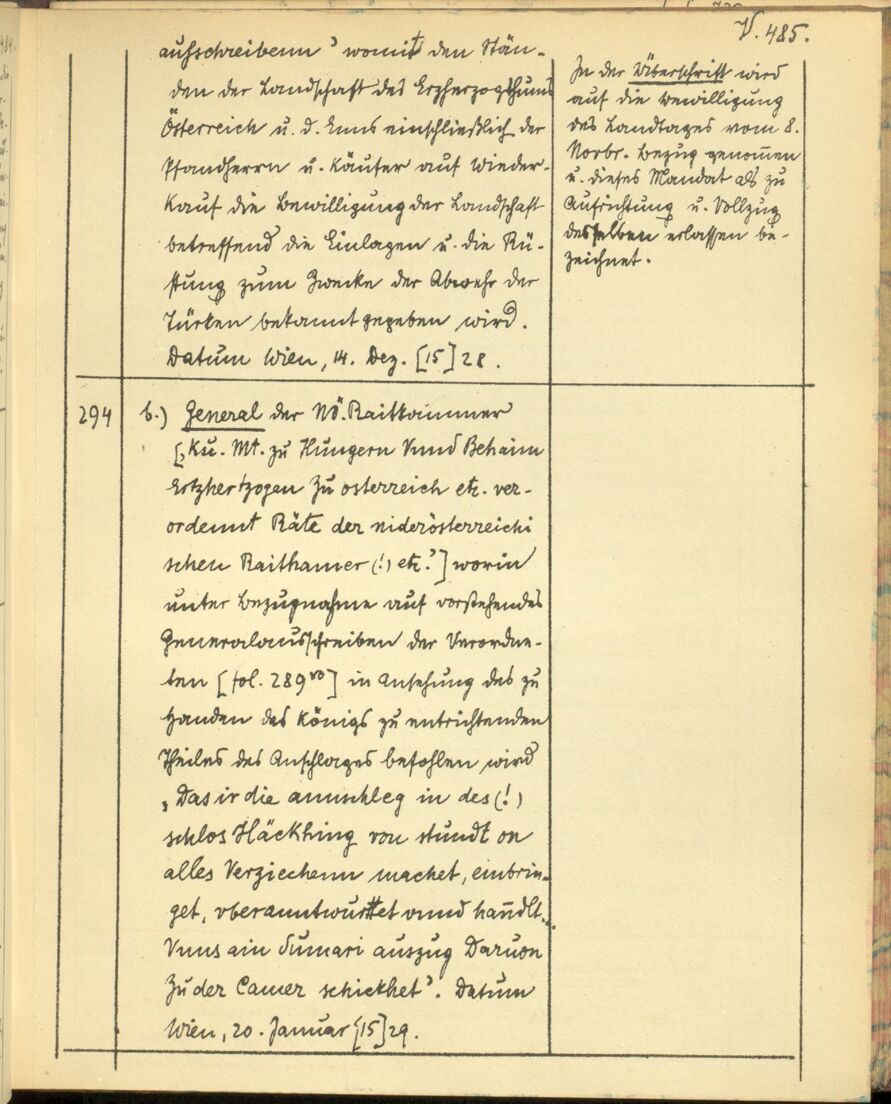 V. 485.
aufschreibenn' womit den Stän-
den der Landschaft des Erzherzogthums
Österreich u. d. Enns einschließlich der
Pfandherrn u. Käufer auf Wieder-
kauf die Bewilligung der Landschaft
betreffend die Einlagen u. die Rü-
stung zum Zwecke der Abwehr der
Türken bekannt gegeben wird.
Datum Wien, 14. Dez. [15]28.
In der Überschrift wird
auf die Bewilligung
des Landtages vom 8.
Novbr. Bezug genommen
u. dieses Mandat als zu
Aufrichtung u. Vollzug
desselben erlassen be-
zeichnet.
294 b.) General der NÖ. Raitkammer
[‚Ku. Mt. zu Hungern Vnnd Behaim
Ertzhertzogen zu osterreich etc. ver-
ordennt Räte der niderösterreichi
schen Raithamer (!) etc.'] worin
unter Bezugnahme auf vorstehendes
Generalausschreiben der Verordne-
ten [fol. 289vo] in Ansehung des zu
Handen des Königs zu entrichtenden
Theiles des Anschlages befohlen wird
‚Das ir die annschleg in des (!)
schlos Häckhing von stundt on
alles Verziechenn machet, einbrin-
get, vberanntwurttet vnnd handlt..
Vnns ain Sumari auszug Daruon
Zu der Camer schickhet'. Datum
Wien, 20. Januar [15]29.